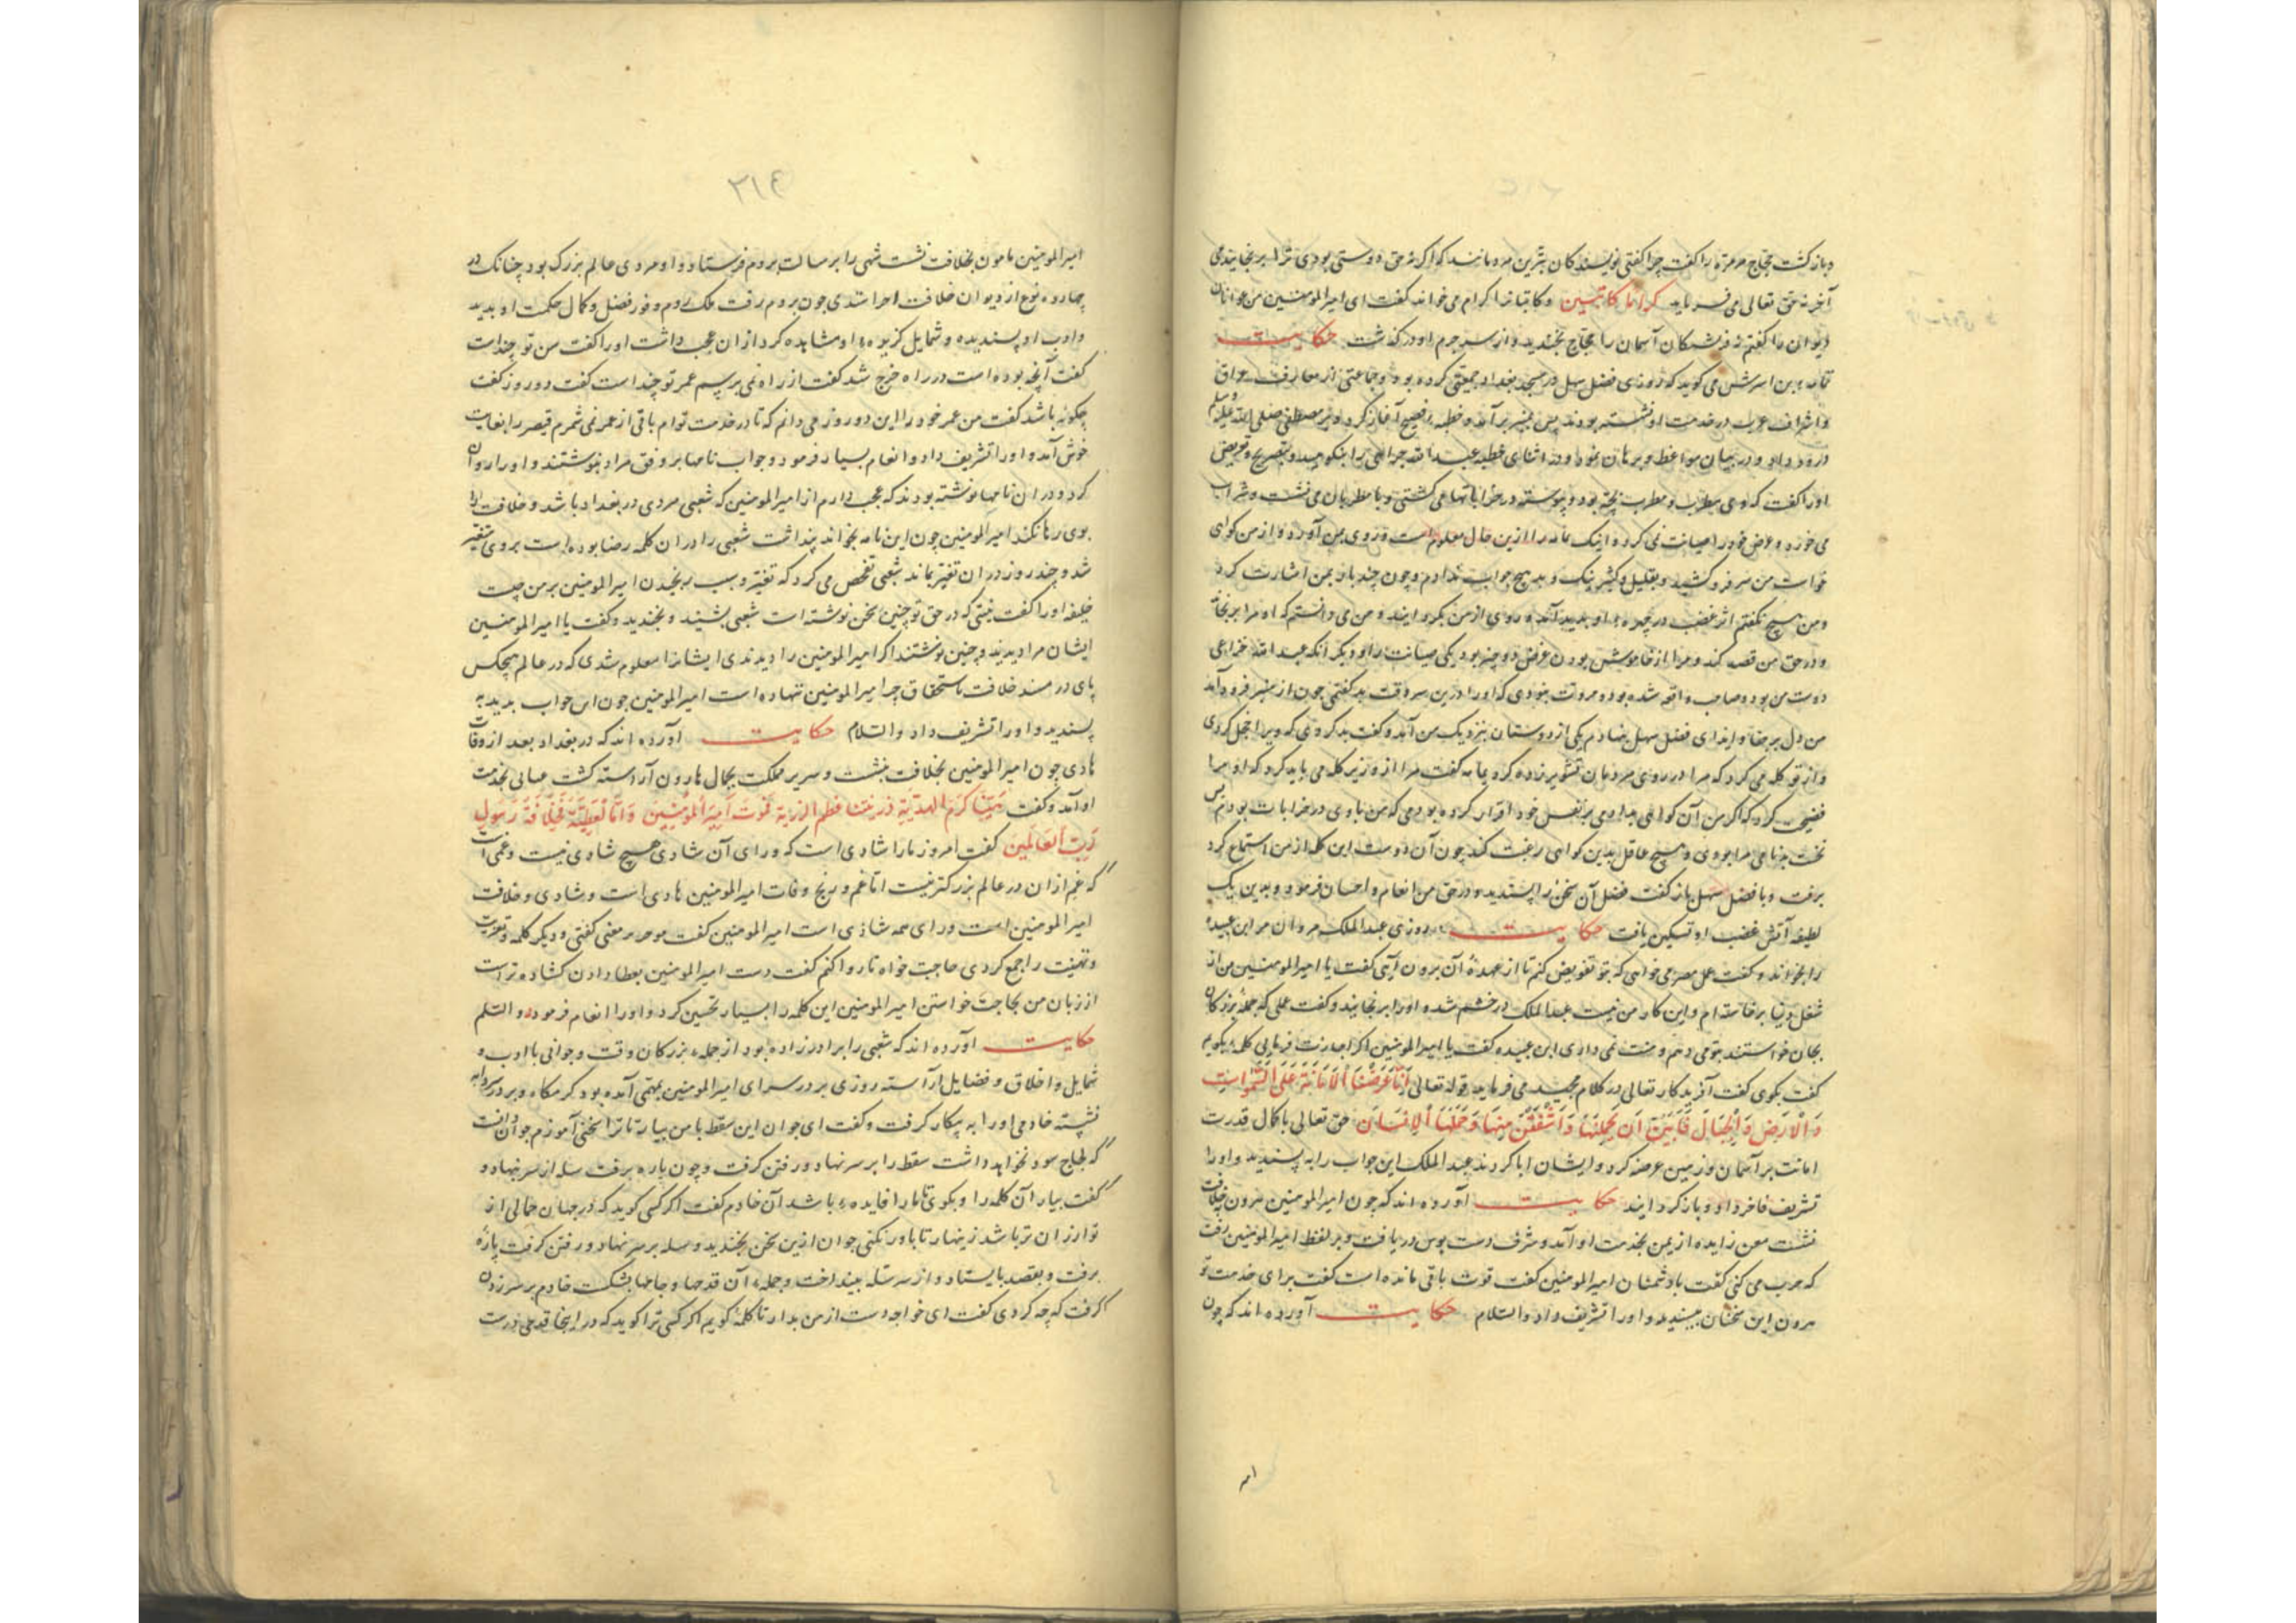 و بازگشت حجاج مر مرة را گفت چرا گفتی نویسندگان بترین مردمانند که اگر نه حق دوستی بودی ترا برنجانیدمی
آخر نه حق تعالی می فرماید کراما کاتبین و کاتبانرا کرام می خواند گفت ای امیرالمومنین من عوانان
دیوان را گفتم نه فرشتگان آسمان را حجاج بخندید و از سر جرم او درگذشت حکایت
بن اسرش می گوید که روزی فضل سهل در مسجد بغداد جمعیتی کرده بود و جماعتی از معارف عراق
و اشراف عرب در خدمت او نشسته بودند پس بمنبر برآمد و خطبه فصیح آغاز کرد و بر مصطفی صلی الله علیه وسلم
درود داد و در بیان مواعظ و برهان نمود و در اثنای خطبه عبدالله خزاعی را بنکوهید و بتصریح و تعریض
او را گفت که وی مطرب و مطرب بچه بود و پیوسته در خراباتها می گشتی و با مطربان می نشست و شراب
می خورد و عرض خود را صیانت نمی کرد و اینک را ازین حال معلوم است و روی بمن آورد و از من گوای
خواست من سر فرو کشیدم و بقلیل و کثیر نیک و بد هیچ جواب ندادم و چون چند بار بمن اشارت کرد
و من هیچ نگفتم اثر غضب در چهرهٔ او پدید آمد و روی از من بگردانید و من می دانستم که او مرا برنجاند
و در حق من قصد کند و مرا از خاموش بودن غرض دو چیز بود یکی صیانت را و دیگر آنکه عبدالله خزاعی
دوست من بود و صاحب واقعه شده بود و مروت نبودی که او را درین سر وقت بد گفتمی چون از منبر فرود آمد
من دل بر جفا و ایذای فضل سهل نهادم یکی از دوستان بنزدیک من آمد و گفت بد کردی که ویرا خجل کردی
و از تو گله می کرد که مرا در روی مردمان تشویر زده کرد گفت مرا از وزیر گله می باید کرد که او مرا
فضیحت کرد که اگر من آن گواهی بدادمی بر نفس خود اقرار کرده بودمی که من باوی در خرابات بودم پس
نخست بدنامی مرا بودی و هیچ عاقل بدین گواهی رغبت نکند چون آن دوست این کلمه از من استماع کرد
برفت و با فضل سهل باز گفت فضل آن سخن را پسندید و در حق من انعام و احسان فرمود و بدین یک
لطیفه آتش غضب او تسکین یافت حکایت روزی عبدالملک مروان مر ابن عبیده
را بخواند و گفت عمل مصر می خواهی که بتو تفویض کنم تا از عهدهٔ آن برون آیی گفت یا امیرالمومنین من از
شغل دنیا برخاسته ام و این کار من نیست عبدالملک در خشم شد و او را برنجانید و گفت عملی که جملهٔ بزرگان
بجان خواستند بتو می دهم و منت نمی داری ابن عبیده گفت یا امیرالمومنین اگر اجازت فرمایی کلمهٔ بگویم
گفت بگوی گفت آفریدگار تعالی در کلام مجید می فرماید قوله تعالی اِنَّا عَرَضْنَا الاَمَانَةَ عَلَی السَّمٰوَاتِ
وَالاَرْضِ وَالجِبَالِ فَاَبَیْنَ اَن یَحْمِلْنَهَا وَاَشْفَقْنَ مِنْهَا وَحَمَلَهَا الاِنْسَانُ حق تعالی با کمال قدرت
امانت بر آسمان و زمین عرضه کرد و ایشان ابا کردند عبدالملک این جواب را بپسندید و او را
تشریف فاخر داد و باز گردانید حکایت آورده اند که چون امیرالمومنین هرون بخلافت
نشست معن زایده از یمن بخدمت او آمد و شرف دست بوس دریافت و بر لفظ امیرالمومنین رفت
که حرب می کنی گفت با دشمنان امیرالمومنین گفت قوت باقی مانده است گفت برای خدمت تو
هرون این سخنان بپسندید و او را تشریف داد والسلام حکایت آورده اند که چون
امیر
۳۱۴
امیرالمومنین مامون بخلافت نشست شعبی را برسالت بروم فرستاد و او مردی عالم بزرگ بود چنانک در
چهارده نوع از دیوان خلافت اجرا ستدی چون بروم رفت ملک روم وفور فضل و کمال حکمت او بدید
و ادب او پسندیده و شمایل گزیدهٔ او مشاهده کرد از ان عجب داشت او را گفت سن تو چند است
گفت آنچه بوده است در راه خرج شد گفت از راه نمی پرسم عمر تو چند است گفت دو روز گفت
چگونه باشد گفت من عمر خود را این دو روز می دانم که تا در خدمت توام باقی از عمر نمی شمرم قیصر را بغایت
خوش آمد و او را تشریف داد و انعام بسیار فرمود و جواب نامها بر وفق مراد بنوشتند و او را روان
کرد و در ان نامها نوشته بودند که عجب دارم از امیرالمومنین که شعبی مردی در بغداد باشد و خلافت را
بوی رها نکند امیرالمومنین چون این نامه بخواند پنداشت شعبی را دران کلمه رضا بوده است بر وی متغیر
شد و چند روز در ان تغیر بماند شعبی تفحص می کرد که تغیر و سبب رنجیدن امیرالمومنین بر من چیست
خلیفه او را گفت که در حق تو چنین سخن نوشته است شعبی بشنید و بخندید و گفت یا امیرالمومنین
ایشان مرا دیدند و چنین نوشتند اگر امیرالمومنین را دیدندی ایشانرا معلوم شدی که در عالم هیچکس
پای در مسند خلافت باستحقاق چو امیرالمومنین ننهاده است امیرالمومنین چون این جواب بدید به
پسندید و او را تشریف داد والسلام حکایت آورده اند که در بغداد بعد از وفات
هادی چون امیرالمومنین بخلافت بنشست و سریر مملکت بجمال هارون آراسته گشت بخدمت
او آمد و گفت
رَبِّ العَالَمِینَ گفت امروز ما را شادی است که ورای آن شادی هیچ شادی نیست و غمی است
که غم از ان در عالم بزرگتر نیست اما غم و رنج وفات امیرالمومنین هادی است و شادی و خلافت
امیرالمومنین است ورای همه شادی است امیرالمومنین گفت معنی گفتی و دیگر کلمه و تعزیت
و تهنیت را جمع کردی حاجت خواه تا روا کنم گفت دست امیرالمومنین بعطا دادن گشاده تر است
از زبان من بحاجت خواستن امیرالمومنین این کلمه را بسیار تحسین کرد و او را انعام فرمود والسلم
حکایت آورده اند که شعبی را برادر زاده بود از جملهٔ بزرگان وقت و جوانی با ادب و
شمایل و اخلاق و فضایل آراسته روزی بر در سرای امیرالمومنین بمهمی آمده بود گرمگاه و بر در سردابه
نشسته خادمی او را به بیگار گرفت و گفت ای جوان این سقط با من بیار تا ترا سخنی آموزم جوان دانست
که لجاج سود نخواهد داشت سقط را بر سر نهاد و رفتن گرفت و چون پاره برفت سله از سر بنهاد و
گفت بیار آن کلمه را و بگوی تا ما را فایدهٔ باشد آن خادم گفت اگر کسی گوید که در جهان حمالی از
تو ارزان تر باشد زینهار تا باور نکنی جوان ازین سخن بخندید و سله بر سر نهاد و رفتن گرفت پارهٔ
برفت و بقصد بایستاد و از سر سله بینداخت و جملهٔ آن قدحها و جامها بشکست خادم بر سر زدن
گرفت که چه کردی گفت ای خواجه دست از من بدار تا کلمهٔ گویم اگر کسی ترا گوید که در اینجا قدحی درست